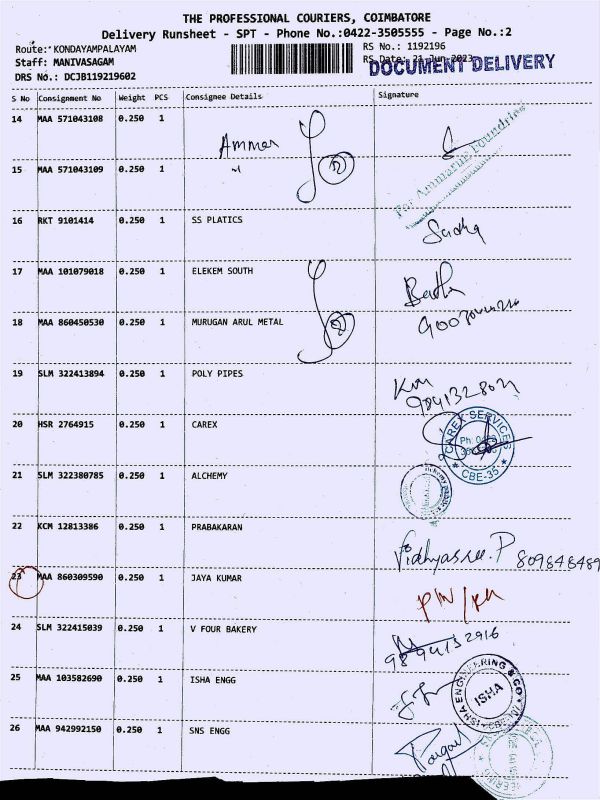 THE PROFESSIONAL COURIERS, COIMBATORE
Delivery Runsheet - SPT - Phone No.:0422-3505555 - Page No.:2
Route: KONDAYAMPALAYAM
RS No.: 1192196
Staff: MANIVASAGAM
RS Date: 21 Jun 2023
DOCUMENT DELIVERY
DRS No.: DCJB119219602
S No Consignment No Weight PCS Consignee Details Signature
14 MAA 571043108 0.250 1
Ammar
For Ammarun Foundries
15 MAA 571043109 0.250 1
2
16 RKT 9101414 0.250 1 SS PLATICS
Sudha
17 MAA 101079018 0.250 1 ELEKEM SOUTH
18 MAA 860450530 0.250 1 MURUGAN ARUL METAL
2
19 SLM 322413894 0.250 1 POLY PIPES
20 HSR 2764915 0.250 1 CAREX
CAREX SERVICES
CBE-35
21 SLM 322380785 0.250 1 ALCHEMY
22 KCM 12813386 0.250 1 PRABAKARAN
Vidhyasree.P
23 MAA 860309590 0.250 1 JAYA KUMAR
24 SLM 322415039 0.250 1 V FOUR BAKERY
25 MAA 103582690 0.250 1 ISHA ENGG
ISHA ENGINEERING & CO
ISHA
26 MAA 942992150 0.250 1 SNS ENGG